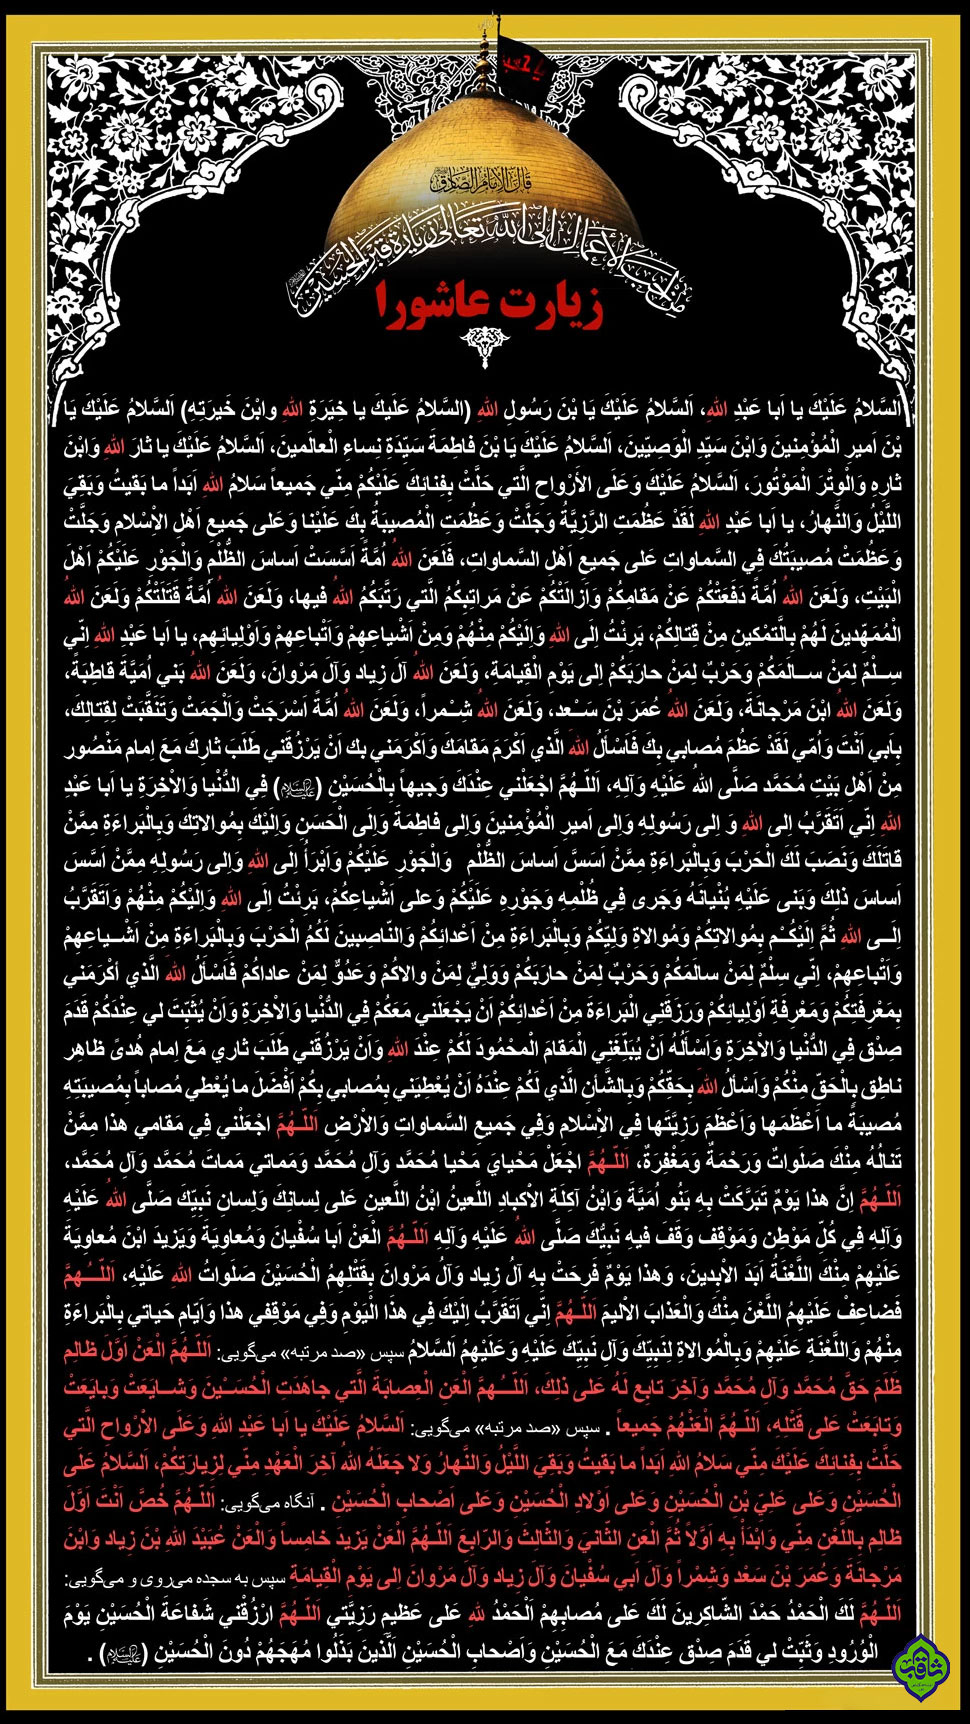 یا حسین
قَالَ الإِمَامُ الصَّادِقُ
مِنْ أَحَبِّ الأَعْمَالِ إِلَى اللّهِ تَعَالَى زِیَارَةُ قَبْرِ الْحُسَیْنِ
زیارت عاشورا
اَلسَّلامُ عَلَيْكَ يا اَبا عَبْدِ اللهِ، اَلسَّلامُ عَلَيْكَ يَا بْنَ رَسُولِ اللهِ (السَّلامُ عَلَيكَ يا خِيَرَةِ اللهِ وابْنَ خَيرَتِهِ) اَلسَّلامُ عَلَيْكَ يَا
بْنَ اَميرِ الْمُؤْمِنينَ وَابْنَ سَيِّدِ الْوَصِيّينَ، اَلسَّلامُ عَلَيْكَ يَا بْنَ فاطِمَةَ سَيِّدَةِ نِساءِ الْعالَمينَ، اَلسَّلامُ عَلَيْكَ يا ثارَ اللهِ وَابْنَ
ثارِهِ وَالْوِتْرَ الْمَوْتُورَ، اَلسَّلامُ عَلَيْكَ وَعَلَى الأَرْواحِ الَّتي حَلَّتْ بِفِنائِكَ عَلَيْكُمْ مِنّي جَميعاً سَلامُ اللهِ اَبَداً ما بَقيتُ وَبَقِيَ
اللَّيْلُ وَالنَّهارُ، يا اَبا عَبْدِ اللهِ لَقَدْ عَظُمَتِ الرَّزِيَّةُ وَجَلَّتْ وَعَظُمَتِ الْمُصيبَةُ بِكَ عَلَيْنا وَعَلى جَميعِ اَهْلِ الاْسْلامِ وَجَلَّتْ
وَعَظُمَتْ مُصيبَتُكَ فِي السَّماواتِ عَلى جَميعِ اَهْلِ السَّماواتِ، فَلَعَنَ اللهُ اُمَّةً اَسَّسَتْ اَساسَ الظُّلْمِ وَالْجَوْرِ عَلَيْكُمْ اَهْلَ
الْبَيْتِ، وَلَعَنَ اللهُ اُمَّةً دَفَعَتْكُمْ عَنْ مَقامِكُمْ وَاَزالَتْكُمْ عَنْ مَراتِبِكُمُ الَّتي رَتَّبَكُمُ اللهُ فيها، وَلَعَنَ اللهُ اُمَّةً قَتَلَتْكُمْ وَلَعَنَ اللهُ
الْمُمَهِّدينَ لَهُمْ بِالَّتمْكينِ مِنْ قِتالِكُمْ، بَرِئْتُ اِلَى اللهِ وَاِلَيْكُمْ مِنْهُمْ وَمِنْ اَشْياعِهِمْ وَاَتْباعِهِمْ وَاَوْلِيائِهِم، يا اَبا عَبْدِ اللهِ اِنّي
سِـلْمٌ لِمَنْ سـالَمَكُمْ وَحَرْبٌ لِمَنْ حارَبَكُمْ اِلى يَوْمِ الْقِيامَةِ، وَلَعَنَ اللهُ آلَ زِياد وَآلَ مَرْوانَ، وَلَعَنَ اللهُ بَني اُمَيَّةَ قاطِبَةً،
وَلَعَنَ اللهُ ابْنَ مَرْجانَةَ، وَلَعَنَ اللهُ عُمَرَ بْنَ سَـعْد، وَلَعَنَ اللهُ شـمْراً، وَلَعَنَ اللهُ اُمَّةً اَسْرَجَتْ وَاَلْجَمَتْ وَتَنَقَّبَتْ لِقِتالِكَ،
بِاَبي اَنْتَ وَاُمّي لَقَدْ عَظُمَ مُصابي بِكَ فَاَسْأَلُ اللهَ الَّذي اَكْرَمَ مَقامَكَ وَاَكْرَمَني بك اَنْ يَرْزُقَني طَلَبَ ثارِكَ مَعَ اِمام مَنْصُور
مِنْ اَهْلِ بَيْتِ مُحَمَّد صَلَّى اللهُ عَلَيْهِ وَآلِهِ، اَللّـهُمَّ اجْعَلْني عِنْدَكَ وَجيهاً بِالْحُسَيْنِ (علیه‌السلام) فِي الدُّنْيا وَالاْخِرَةِ يا اَبا عَبْدِ
اللهِ اِنّي اَتَقَرَّبُ اِلى اللهِ وَ اِلى رَسُولِهِ وَاِلى اميرِ الْمُؤْمِنينَ وَاِلى فاطِمَةَ وَاِلَى الْحَسَنِ وَاِلَيْكَ بِمُوالاتِكَ وَبِالْبَراءَةِ مِمَّنْ
قاتَلَكَ وَنَصَبَ لَكَ الْحَرْبَ وَبِالْبَراءَةِ مِمَّنْ اَسَسَّ اَساسَ الظُّلْمِ وَالْجَوْرِ عَلَيْكُمْ وَاَبْرَأُ اِلَى اللهِ وَاِلى رَسُولِهِ مِمَّنْ اَسَّسَ
اَساسَ ذلِكَ وَبَنى عَلَيْهِ بُنْيانَهُ وَجَرى فِي ظُلْمِهِ وَجَوْرِهِ عَلَيْكُمْ وَعلى اَشْياعِكُمْ، بَرِئْتُ اِلَى اللهِ وَاِلَيْكُمْ مِنْهُمْ وَاَتَقَرَّبُ
اِلَـى اللهِ ثُمَّ اِلَيْكُـمْ بِمُوالاتِكُمْ وَمُوالاةِ وَلِيِّكُمْ وَبِالْبَراءَةِ مِنْ اَعْدائِكُمْ وَالنّاصِبينَ لَكُمُ الْحَرْبَ وَبِالْبَراءَةِ مِنْ اَشْـياعِهِمْ
وَاَتْباعِهِمْ، اِنّي سِلْمٌ لِمَنْ سالَمَكُمْ وَحَرْبٌ لِمَنْ حارَبَكُمْ وَوَلِيٌّ لِمَنْ والاكُمْ وَعَدُوٌّ لِمَنْ عاداكُمْ فَاَسْأَلُ اللهَ الَّذي أكْرَمَني
بِمَعْرِفَتِكُمْ وَمَعْرِفَةِ اَوْلِيائِكُمْ وَرَزَقَنِي الْبَراءَةَ مِنْ اَعْدائِكُمْ اَنْ يَجْعَلَني مَعَكُمْ فِي الدُّنْيا وَالاْخِرَةِ وَاَنْ يُثَبِّتَ لي عِنْدَكُمْ قَدَمَ
صِدْق فِي الدُّنْيا وَالاْخِرَةِ وَاَسْأَلُهُ اَنْ يُبَلِّغَنِي الْمَقامَ الْمحْمُودَ لَكُمْ عِنْدَ اللهِ وَاَنْ يَرْزُقَني طَلَبَ ثاري مَعَ اِمام هُدىً ظاهِر
ناطِق بِالْحَقِّ مِنْكُمْ وَاَسْألُ اللهَ بِحَقِّكُمْ وَبِالشَّأنِ الَّذي لَكُمْ عِنْدَهُ اَنْ يُعْطِيَني بِمُصابي بِكُمْ اَفْضَلَ ما يُعْطي مُصاباً بِمُصيبَتِهِ
مُصيبَةً ما اَعْظَمَها وَاَعْظَمَ رَزِيَّتَها فِي الاْسْلامِ وَفِي جَميعِ السَّماواتِ وَالاْرْضِ اَللّـهُمَّ اجْعَلْني فِي مَقامي هذا مِمَّنْ
تَنالُهُ مِنْكَ صَلَواتٌ وَرَحْمَةٌ وَمَغْفِرَةٌ، اَللّـهُمَّ اجْعَلْ مَحْيايَ مَحْيا مُحَمَّد وَآلِ مُحَمَّد وَمَماتي مَماتَ مُحَمَّد وَآلِ مُحَمَّد،
اَللّـهُمَّ اِنَّ هذا يَوْمٌ تَبَرَّكَتْ بِهِ بَنُو اُمَيَّةَ وَابْنُ آكِلَةِ الاْكبادِ اللَّعينُ ابْنُ اللَّعينِ عَلى لِسانِكَ وَلِسانِ نَبِيِّكَ صَلَّى اللهُ عَلَيْهِ
وَآلِهِ فِي كُلِّ مَوْطِن وَمَوْقِف وَقَفَ فيهِ نَبِيُّكَ صَلَّى اللهُ عَلَيْهِ وَآلِهِ اَللّـهُمَّ الْعَنْ اَبا سُفْيانَ وَمُعاوِيَةَ وَيَزيدَ ابْنَ مُعاوِيَةَ
عَلَيْهِمْ مِنْكَ اللَّعْنَةُ اَبَدَ الاْبِدينَ، وَهذا يَوْمٌ فَرِحَتْ بِهِ آلُ زِياد وَآلُ مَرْوانَ بِقَتْلِهِمُ الْحُسَيْنَ صَلَواتُ اللهِ عَلَيْهِ، اَللّــهُمَّ
فَضاعِفْ عَلَيْهِمُ اللَّعْنَ مِنْكَ وَالْعَذابَ الاْليمَ اَللّـهُمَّ اِنّي اَتَقَرَّبُ اِلَيْكَ فِي هذَا الْيَوْمِ وَفِي مَوْقِفي هذا وَاَيّامِ حَياتي بِالْبَراءَةِ
مِنْهُمْ وَاللَّعْنَةِ عَلَيْهِمْ وَبِالْمُوالاةِ لِنَبِيِّكَ وَآلِ نَبِيِّكَ عَلَيْهِ وعَلَيْهِمُ اَلسَّلامُ سپس «صد مرتبه» می‌گویی: اَللّـهُمَّ الْعَنْ اَوَّلَ ظالِم
ظَلَمَ حَقَّ مُحَمَّد وَآلِ مُحَمَّد وَآخِرَ تابِع لَهُ عَلى ذلِكَ، اَللّــهُمَّ الْعَنِ الْعِصابَةَ الَّتي جاهَدَتِ الْحُسَـيْنَ وَشـايَعَتْ وَبايَعَتْ
وَتابَعَتْ عَلى قَتْلِهِ، اَللّـهُمَّ الْعَنْهُمْ جَميعاً . سپس «صد مرتبه» می‌گویی: اَلسَّلامُ عَلَيْكَ يا اَبا عَبْدِ اللهِ وَعَلَى الاْرْواحِ الَّتي
حَلَّتْ بِفِنائِكَ عَلَيْكَ مِنّي سَلامُ اللهِ اَبَداً ما بَقيتُ وَبَقِيَ اللَّيْلُ وَالنَّهارُ وَلا جَعَلَهُ اللهُ آخِرَ الْعَهْدِ مِنّي لِزِيارَتِكُمْ، اَلسَّلامُ عَلَى
الْحُسَيْنِ وَعَلى عَلِيِّ بْنِ الْحُسَيْنِ وَعَلى اَوْلادِ الْحُسَيْنِ وَعَلى اَصْحابِ الْحُسَيْنِ . آنگاه می‌گویی: اَللّـهُمَّ خُصَّ اَنْتَ اَوَّلَ
ظالِم بِاللَّعْنِ مِنّي وَابْدَأْ بِهِ اَوَّلاً ثُمَّ الْعَنِ الثّانيَ وَالثّالِثَ وَالرّابِعَ اَللّـهُمَّ الْعَنْ يَزيدَ خامِساً وَالْعَنْ عُبَيْدَ اللهِ بْنَ زِياد وَابْنَ
مَرْجانَةَ وَعُمَرَ بْنَ سَعْد وَشِمْراً وَآلَ اَبي سُفْيانَ وَآلَ زِياد وَآلَ مَرْوانَ اِلى يَوْمِ الْقِيامَةِ سپس به سجده می‌روی و می‌گویی:
اَللّـهُمَّ لَكَ الْحَمْدُ حَمْدَ الشّاكِرينَ لَكَ عَلى مُصابِهِمْ اَلْحَمْدُ للهِ عَلى عَظيمِ رَزِيَّتي اَللّـهُمَّ ارْزُقْني شَفاعَةَ الْحُسَيْنِ يَوْمَ
الْوُرُودِ وَثَبِّتْ لي قَدَمَ صِدْق عِنْدَكَ مَعَ الْحُسَيْنِ وَاَصْحابِ الْحُسَيْنِ الَّذينَ بَذَلُوا مُهَجَهُمْ دُونَ الْحُسَيْنِ (علیه‌السلام) .
ثاقب